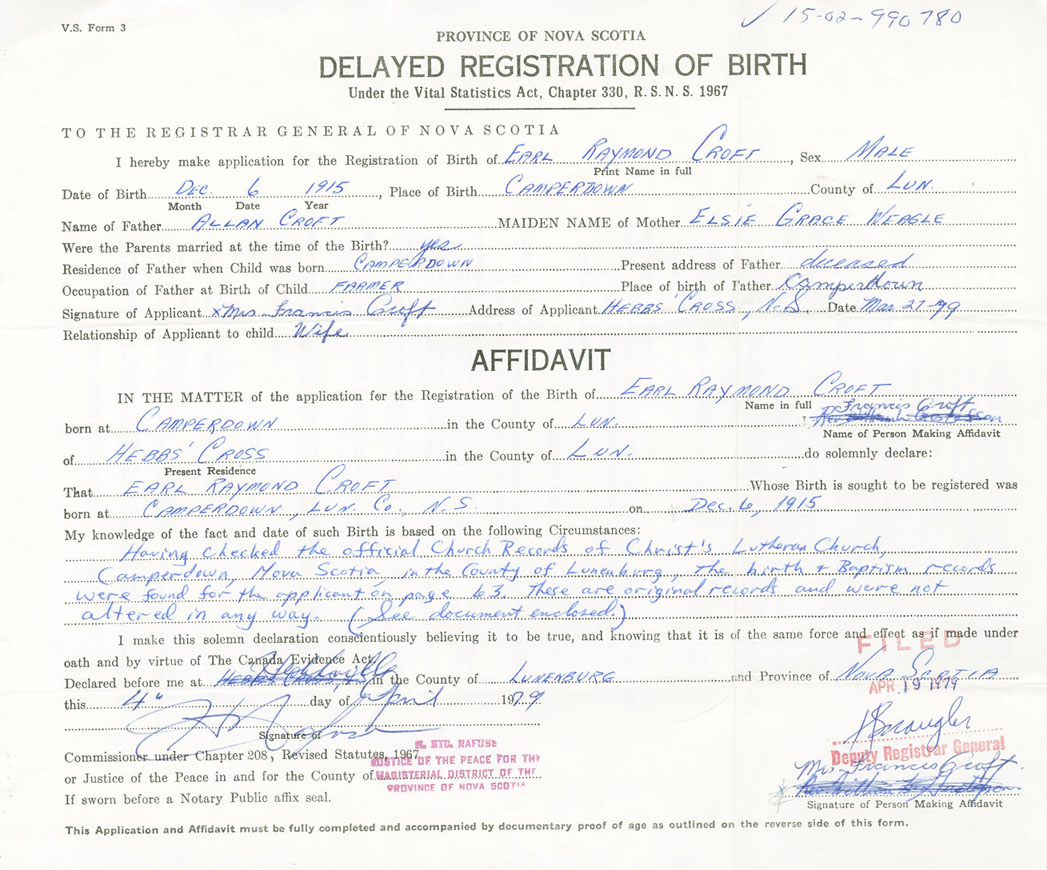 V.S. Form 3
✓ 15-02-990780
PROVINCE OF NOVA SCOTIA
DELAYED REGISTRATION OF BIRTH
Under the Vital Statistics Act, Chapter 330, R.S.N.S. 1967
TO THE REGISTRAR GENERAL OF NOVA SCOTIA
I hereby make application for the Registration of Birth of EARL RAYMOND CROFT, Sex MALE
Print Name in full
Date of Birth DEC. 6 1915, Place of Birth CAMPERDOWN County of LUN.
Month Date Year
Name of Father ALLAN CROFT MAIDEN NAME of Mother ELSIE GRACE WEAGLE
Were the Parents married at the time of the Birth? yes
Residence of Father when Child was born CAMPERDOWN Present address of Father deceased
Occupation of Father at Birth of Child FARMER Place of birth of Father Camperdown
Signature of Applicant x Mrs. Francis Croft Address of Applicant HEBBS' CROSS, N.S. Date Mar. 27-79
Relationship of Applicant to child Wife
AFFIDAVIT
IN THE MATTER of the application for the Registration of the Birth of EARL RAYMOND CROFT
Name in full
born at CAMPERDOWN in the County of LUN. I Francis Croft
Name of Person Making Affidavit
of HEBBS' CROSS in the County of LUN. do solemnly declare:
Present Residence
That EARL RAYMOND CROFT Whose Birth is sought to be registered was
born at CAMPERDOWN, LUN. CO., N.S. on Dec. 6, 1915
My knowledge of the fact and date of such Birth is based on the following Circumstances:
Having checked the official Church Records of Christ's Lutheran Church,
Camperdown, Nova Scotia in the County of Lunenburg, the birth + Baptism records
were found for the applicant on page 63. These are original records and were not
altered in any way. (See document enclosed.)
I make this solemn declaration conscientiously believing it to be true, and knowing that it is of the same force and effect as if made under
oath and by virtue of The Canada Evidence Act.
FILED
Declared before me at HEBBS' CROSS, in the County of LUNENBURG and Province of NOVA SCOTIA
APR 19 1979
this 4th day of April 1979
Signature of
Commissioner under Chapter 208, Revised Statutes, 1967
Deputy Registrar General
RAFUSE
JUSTICE OF THE PEACE FOR THE
or Justice of the Peace in and for the County of
MAGISTERIAL DISTRICT OF THE
PROVINCE OF NOVA SCOTIA
Mrs. Francis Croft
x
Signature of Person Making Affidavit
If sworn before a Notary Public affix seal.
This Application and Affidavit must be fully completed and accompanied by documentary proof of age as outlined on the reverse side of this form.